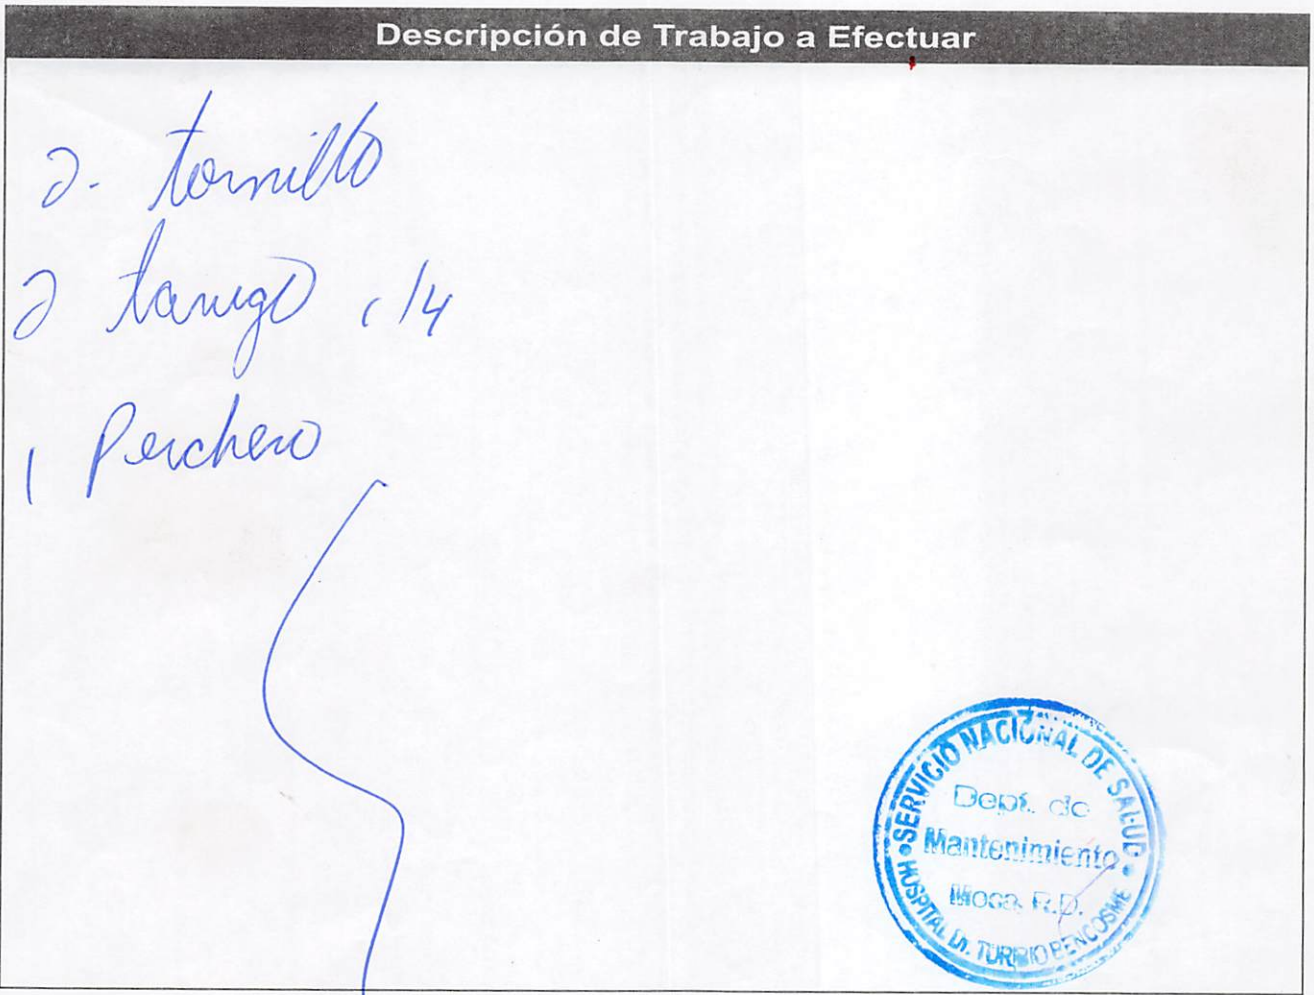 Descripción de Trabajo a Efectuar
2. tornillo
2 tarugo 1/4
1 Perchero
SERVICIO NACIONAL DE SALUD
Dept. de
Mantenimiento
Moca, R.D.
HOSPITAL Dr. TORIBIO BENCOSME